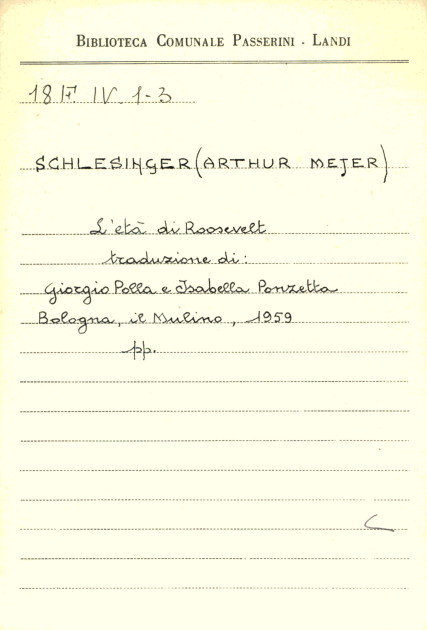 BIBLIOTECA COMUNALE PASSERINI - LANDI
18 F. IV. 1-3
SCHLESINGER (ARTHUR MEJER)
L'età di Roosevelt
traduzione di:
Giorgio Polla e Isabella Ponzetta
Bologna, il Mulino, 1959
pp.